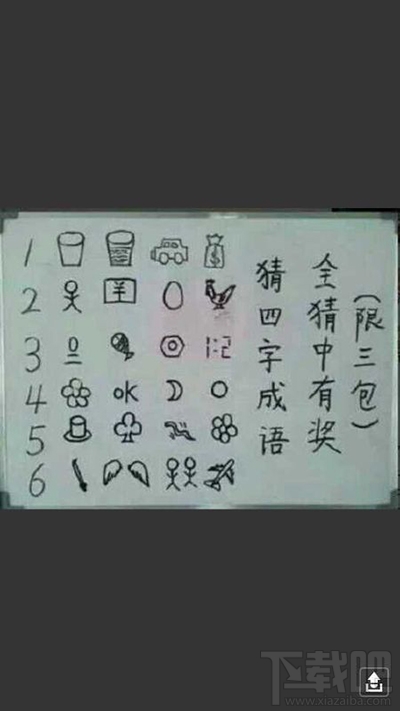 1
2 羊
3 1:2
4 OK
5
6
猜四字成语
全猜中有奖
(限三包)
下载吧
www.xiazaiba.com